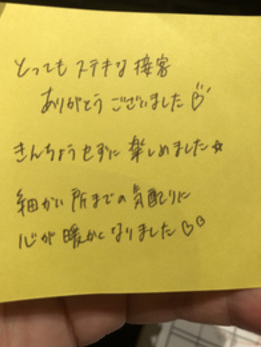 とっても ステキな 接客
ありがとう ございました♡
きんちょうせずに 楽しめました☆
細かい 所までの 気配りに
心が 暖かく なりました♡♡